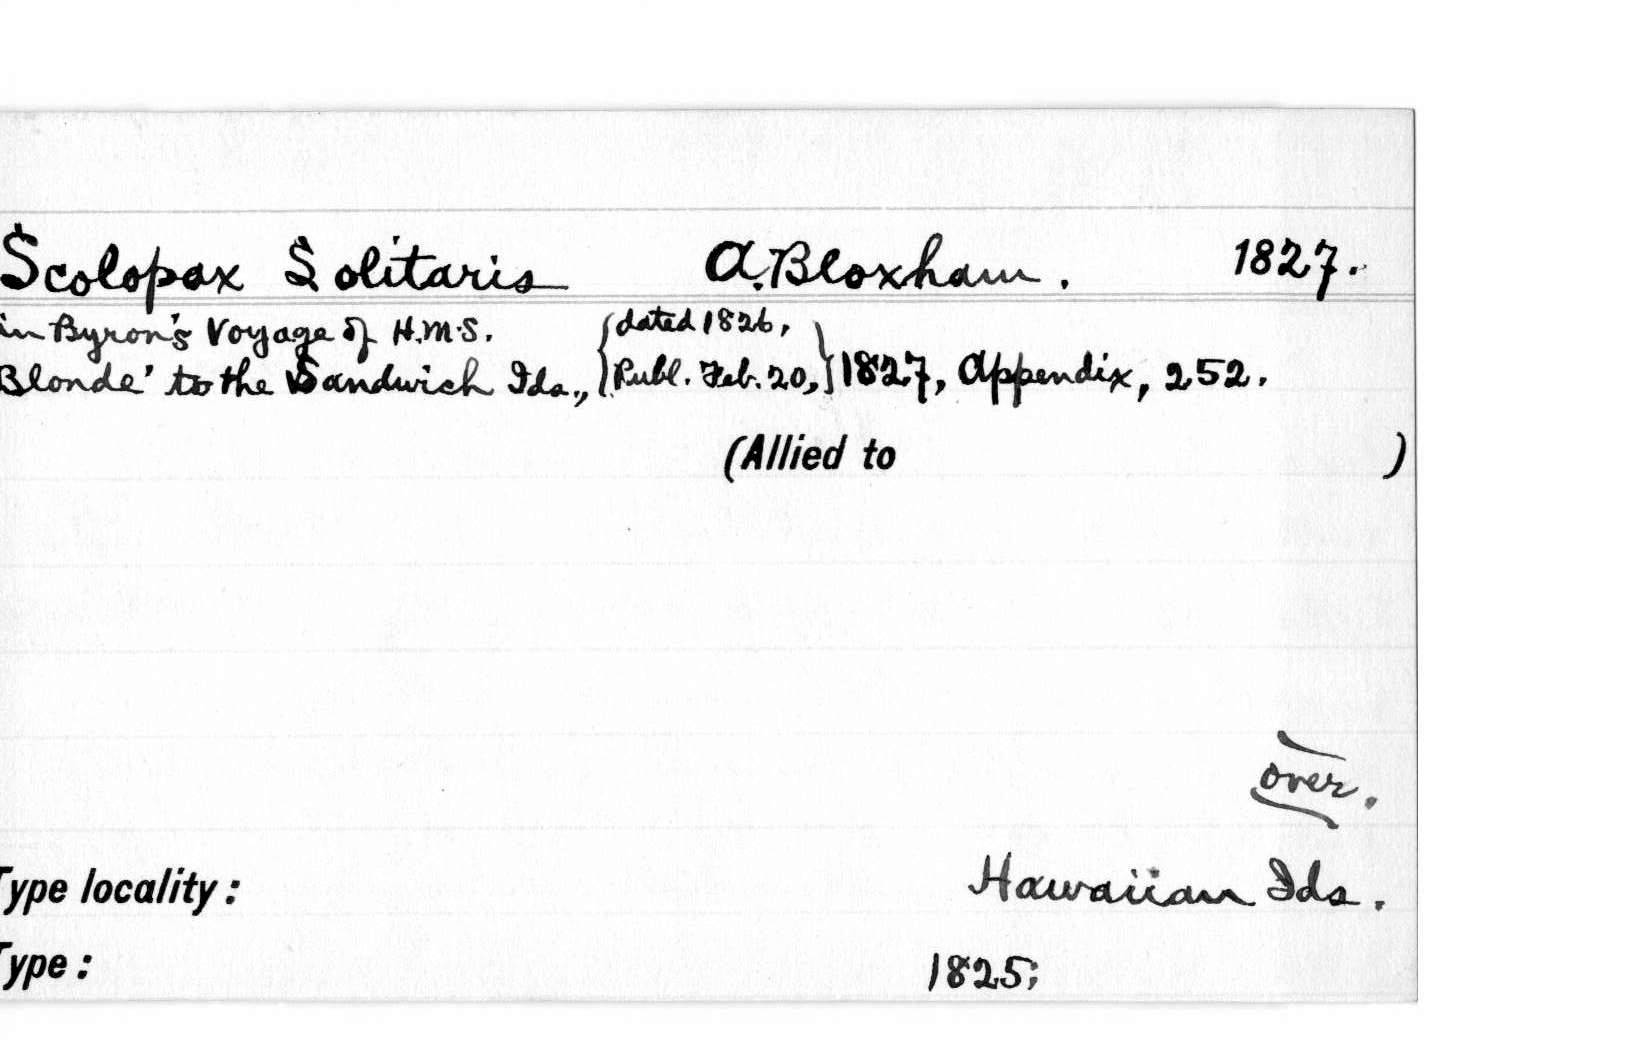 Scolopax Solitaris A. Bloxham. 1827.
in Byron's Voyage of H.M.S. {dated 1826,}
Blonde' to the Sandwich Ids., {Publ. Feb. 20,} 1827, Appendix, 252.
(Allied to )
over.
Type locality: Hawaiian Ids.
Type: 1825;